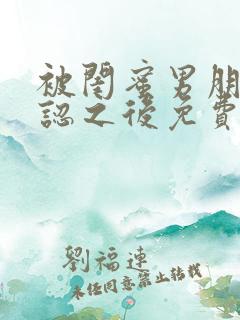 被閨蜜男朋
認之後免費
劉福連
未經同意禁止轉載